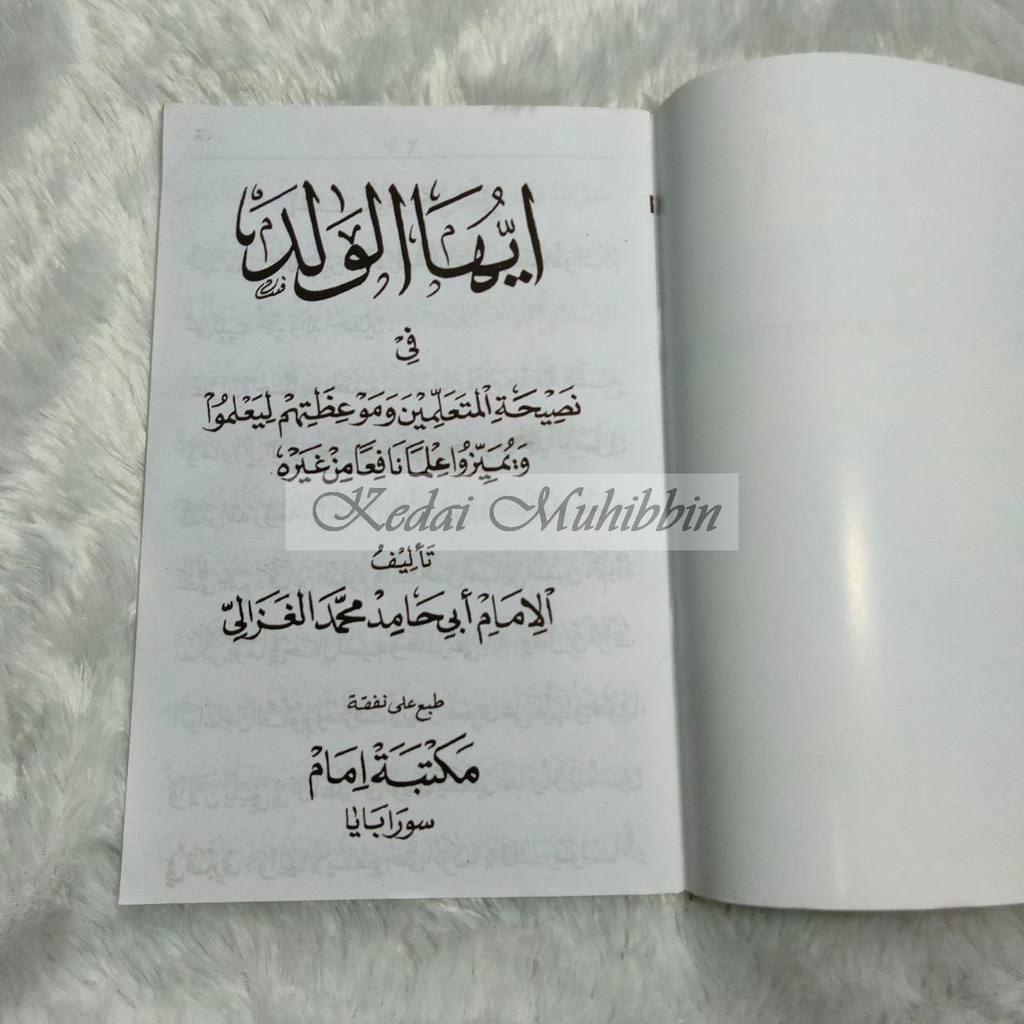 ايّها الولد
في
نَصِيْحَةِ الْمُتَعَلِّمِيْنَ وَمَوْعِظَتِهِمْ لِيَعْلَمُوْا
وَيُمَيِّزُوْا عِلْمًا نَافِعًا مِنْ غَيْرِهِ
Kedai Muhibbin
تَأْلِيْفُ
الْاِمَامِ أَبِي حَامِدْ مُحَمَّد الْغَزَالِيّ
طبع على نفقة
مَكْتَبَةْ اِمَامْ
سورابايا